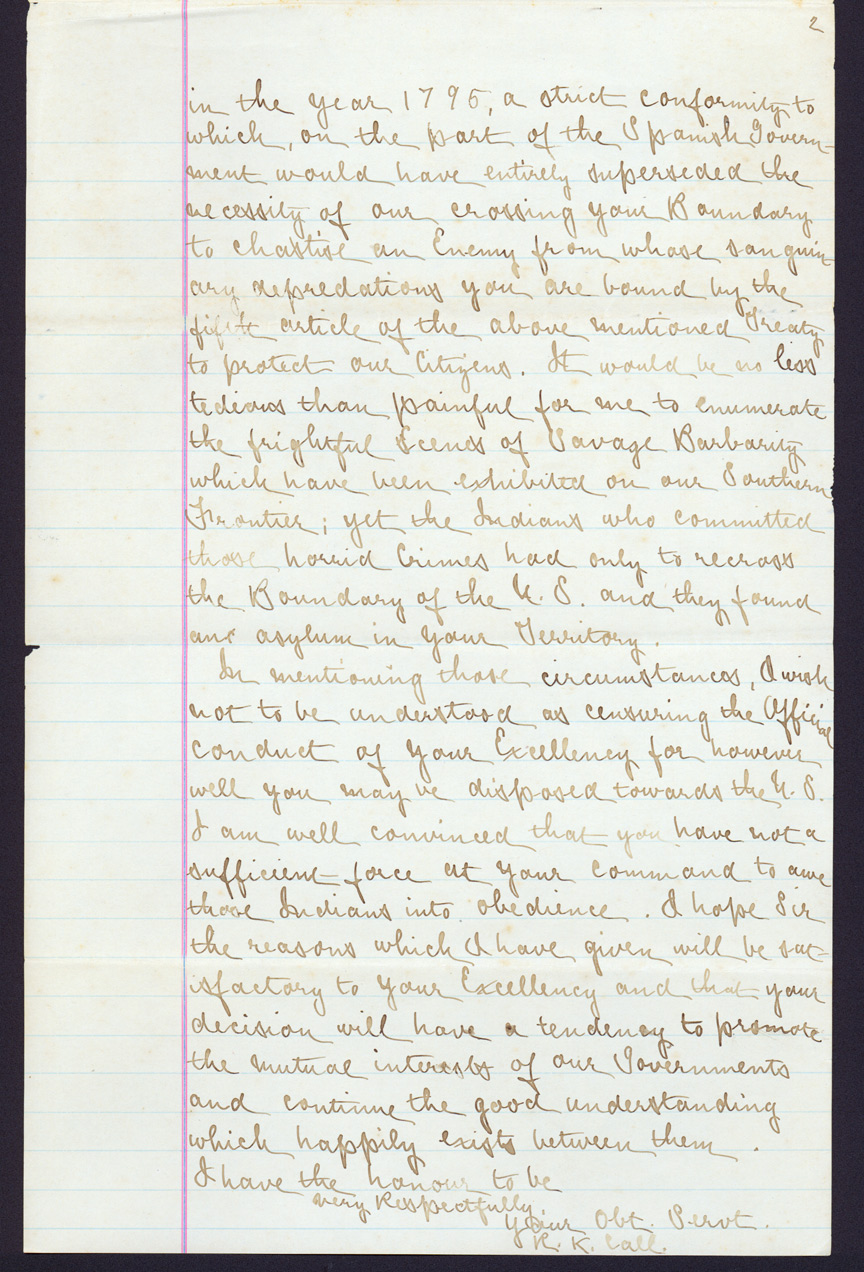 2
in the year 1795, a strict conformity to
which, on the part of the Spanish Govern-
ment would have entirely superseded the
necessity of our crossing your Boundary
to chastise an Enemy from whose sanguin-
ary depredations you are bound by the
fifth article of the above mentioned Treaty
to protect our Citizens. It would be no less
tedious than painful for me to enumerate
the frightful Scenes of Savage Barbarity
which have been exhibited on our Southern
Frontier; yet the Indians who committed
those horrid Crimes had only to recross
the Boundary of the U. S. and they found
an asylum in your Territory.
In mentioning those circumstances, I wish
not to be understood as censuring the Official
conduct of Your Excellency for however
well you may be disposed towards the U. S.
I am well convinced that you have not a
sufficient force at your command to awe
those Indians into obedience. I hope Sir
the reasons which I have given will be sat-
isfactory to Your Excellency and that your
decision will have a tendency to promote
the mutual interests of our Governments
and continue the good understanding
which happily exists between them.
I have the honour to be
very Respectfully
Your Obt. Servt.
R. K. Call.